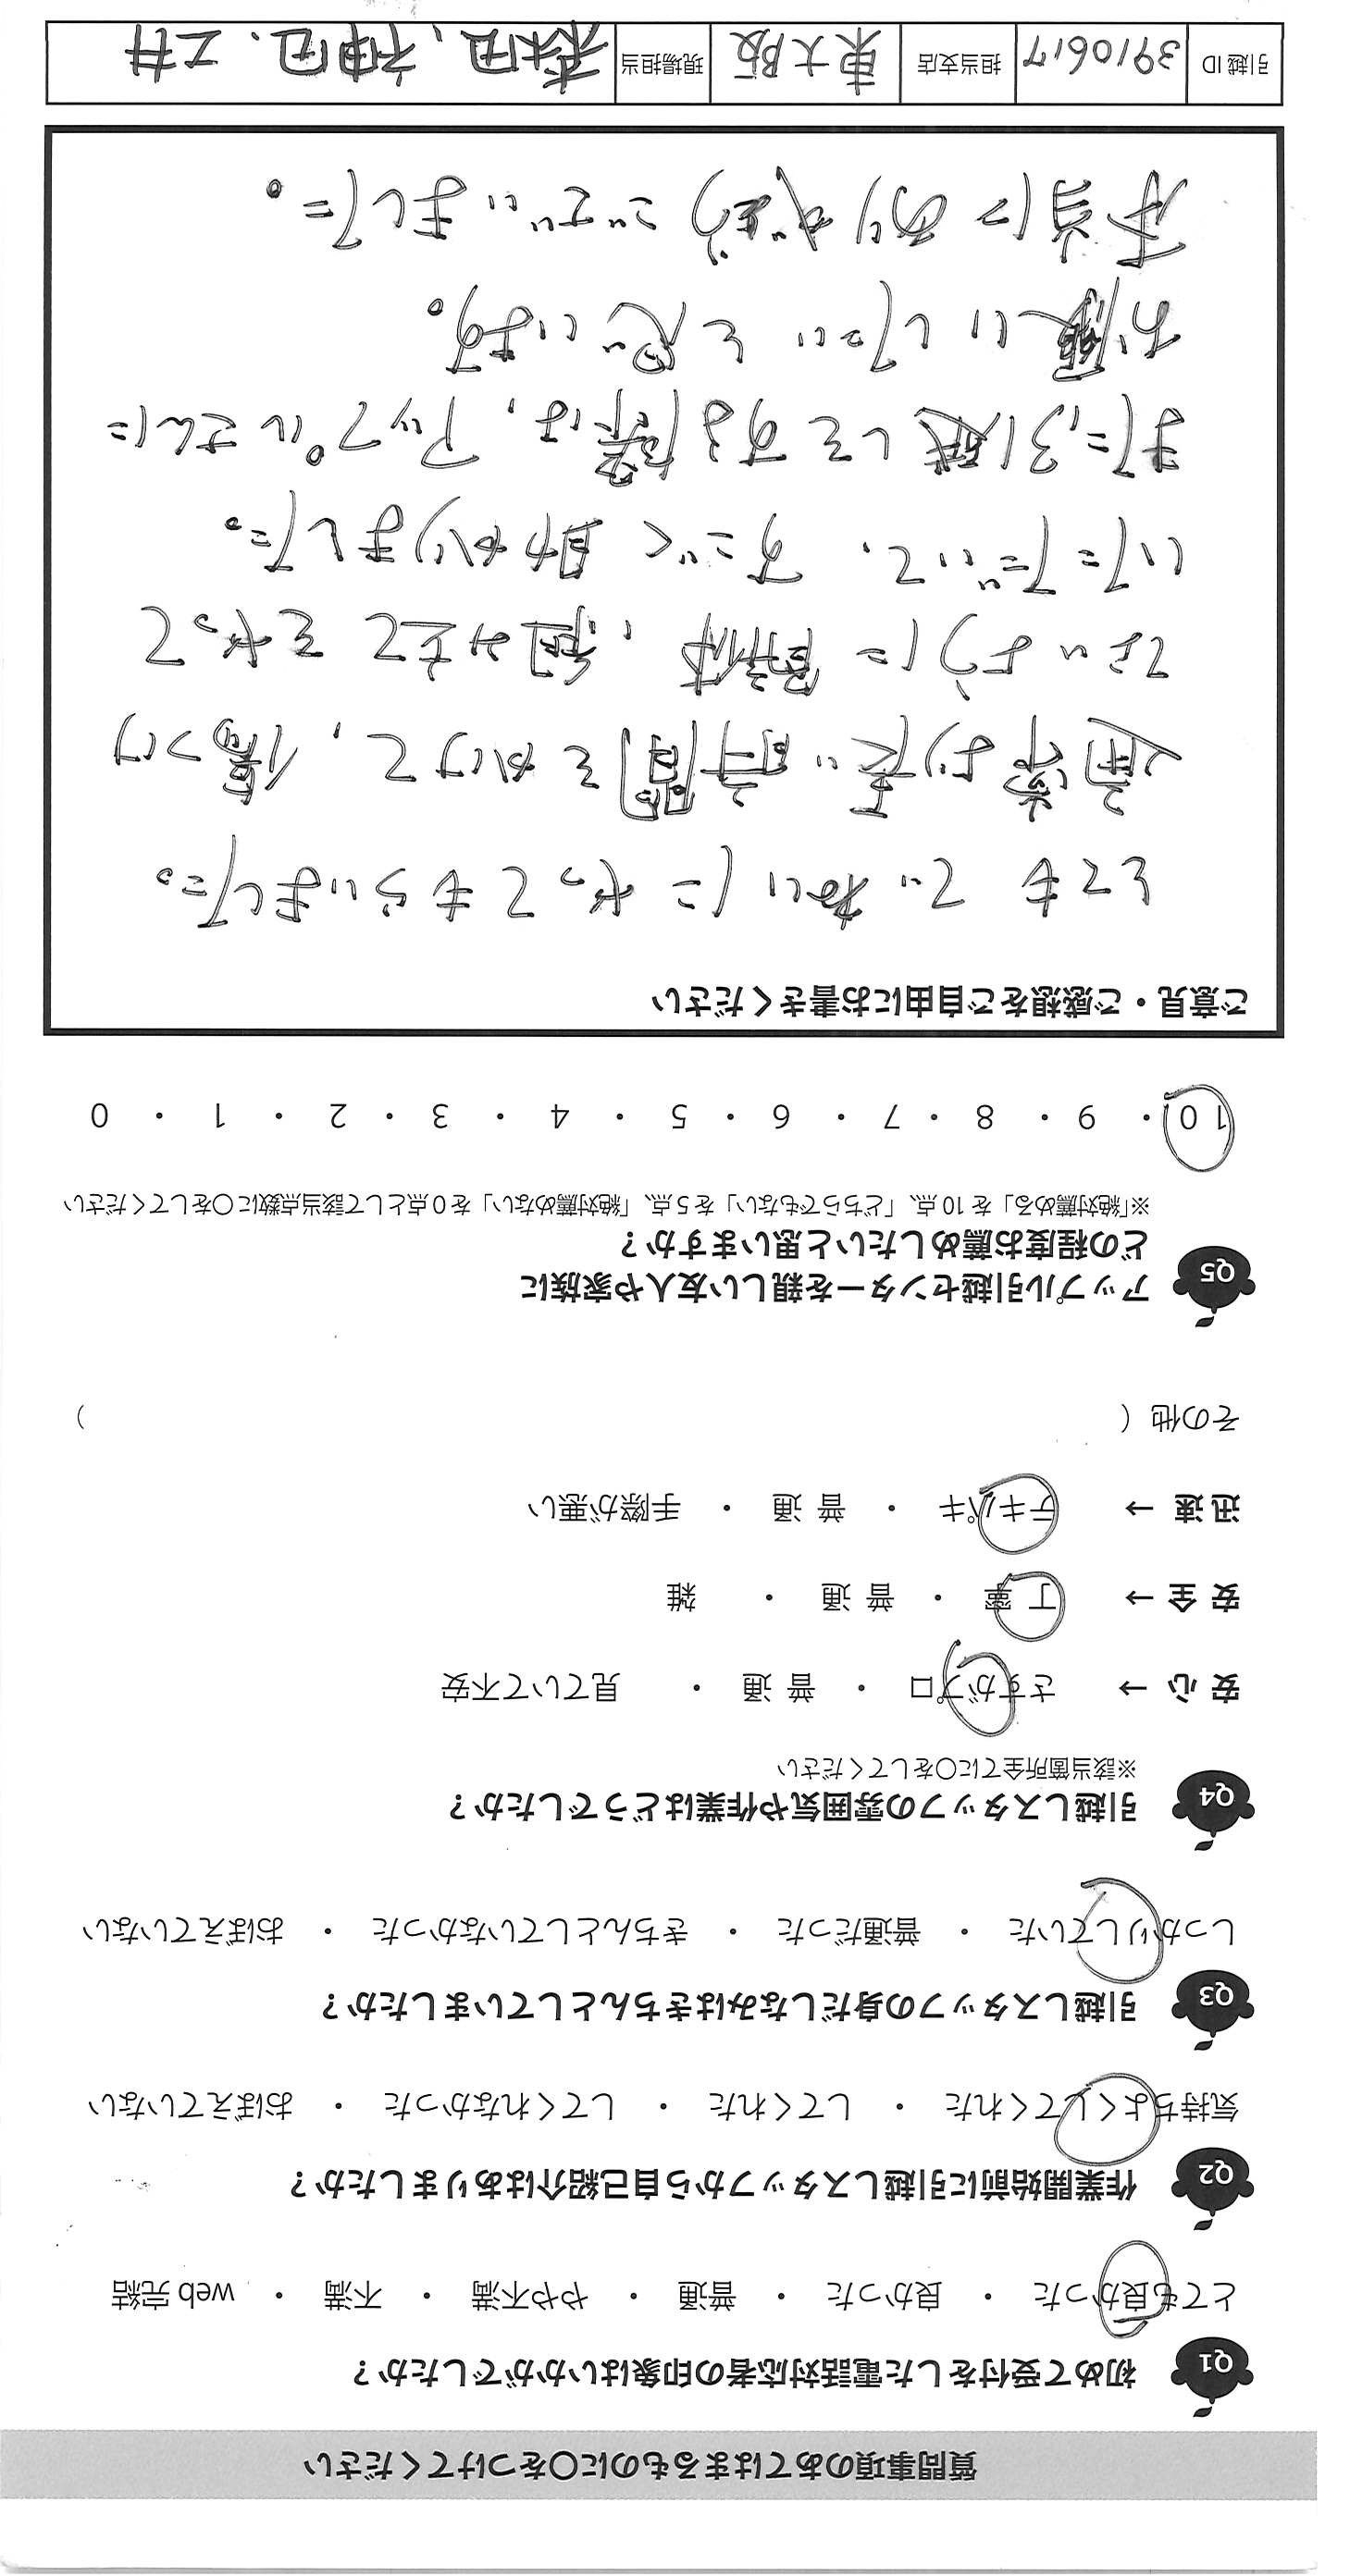 質問事項のあてはまるものに〇をつけてください
Q1 初めて受付をした電話対応者の印象はいかがでしたか？
とても良かった ・ 良かった ・ 普通 ・ やや不満 ・ 不満 ・ web 完結
Q2 作業開始前に引越しスタッフから自己紹介はありましたか？
気持ちよくしてくれた ・ してくれた ・ してくれなかった ・ おぼえていない
Q3 引越しスタッフの身だしなみはきちんとしていましたか？
しっかりしていた ・ 普通だった ・ きちんとしていなかった ・ おぼえていない
Q4 引越しスタッフの雰囲気や作業はどうでしたか？
※該当箇所全てに〇をしてください
安 心 → さすがプロ ・ 普 通 ・ 見ていて不安
安 全 → 丁 寧 ・ 普 通 ・ 雑
迅 速 → テキパキ ・ 普 通 ・ 手際が悪い
その他（ ）
Q5 アップル引越センターを親しい友人や家族に
どの程度お薦めしたいと思いますか？
※「絶対薦める」を 10 点、「どちらでもない」を 5 点、「絶対薦めない」を 0 点として該当点数に〇をしてください
10 ・ 9 ・ 8 ・ 7 ・ 6 ・ 5 ・ 4 ・ 3 ・ 2 ・ 1 ・ 0
ご意見・ご感想をご自由にお書きください
とても ていねいに やってもらいました。
通常より長い時間をかけて、傷つけ
ないように 解体、組み立て をやって
いただいて、すごく 助かりました。
また、引越しをする際は、アップルさんに
お願いしたい と思います。
本当に ありがとう ございました。
引越 ID 3910617 担当支店 東大阪 現場担当 森田、神田、工井